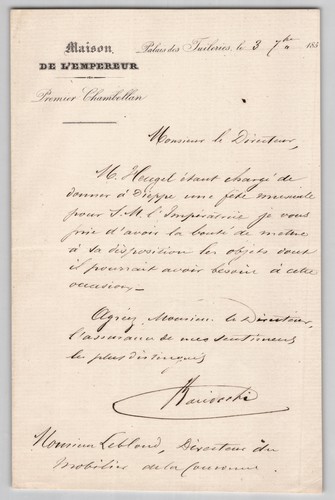 Maison
DE L'EMPEREUR
Palais des Tuileries, le 3 7bre 185
Premier Chambellan
Monsieur le Directeur,
M. Heugel étant chargé de
donner à Dieppe une fête musicale
pour S. M. l'Impératrice je vous
prie d'avoir la bonté de mettre
à sa disposition les objets dont
il pourrait avoir besoin à cette
occasion.
Agréez Monsieur le Directeur,
l'assurance de mes sentiments
les plus distingués
Bacciochi
Monsieur Leblond, Directeur du
Mobilier de la Couronne.